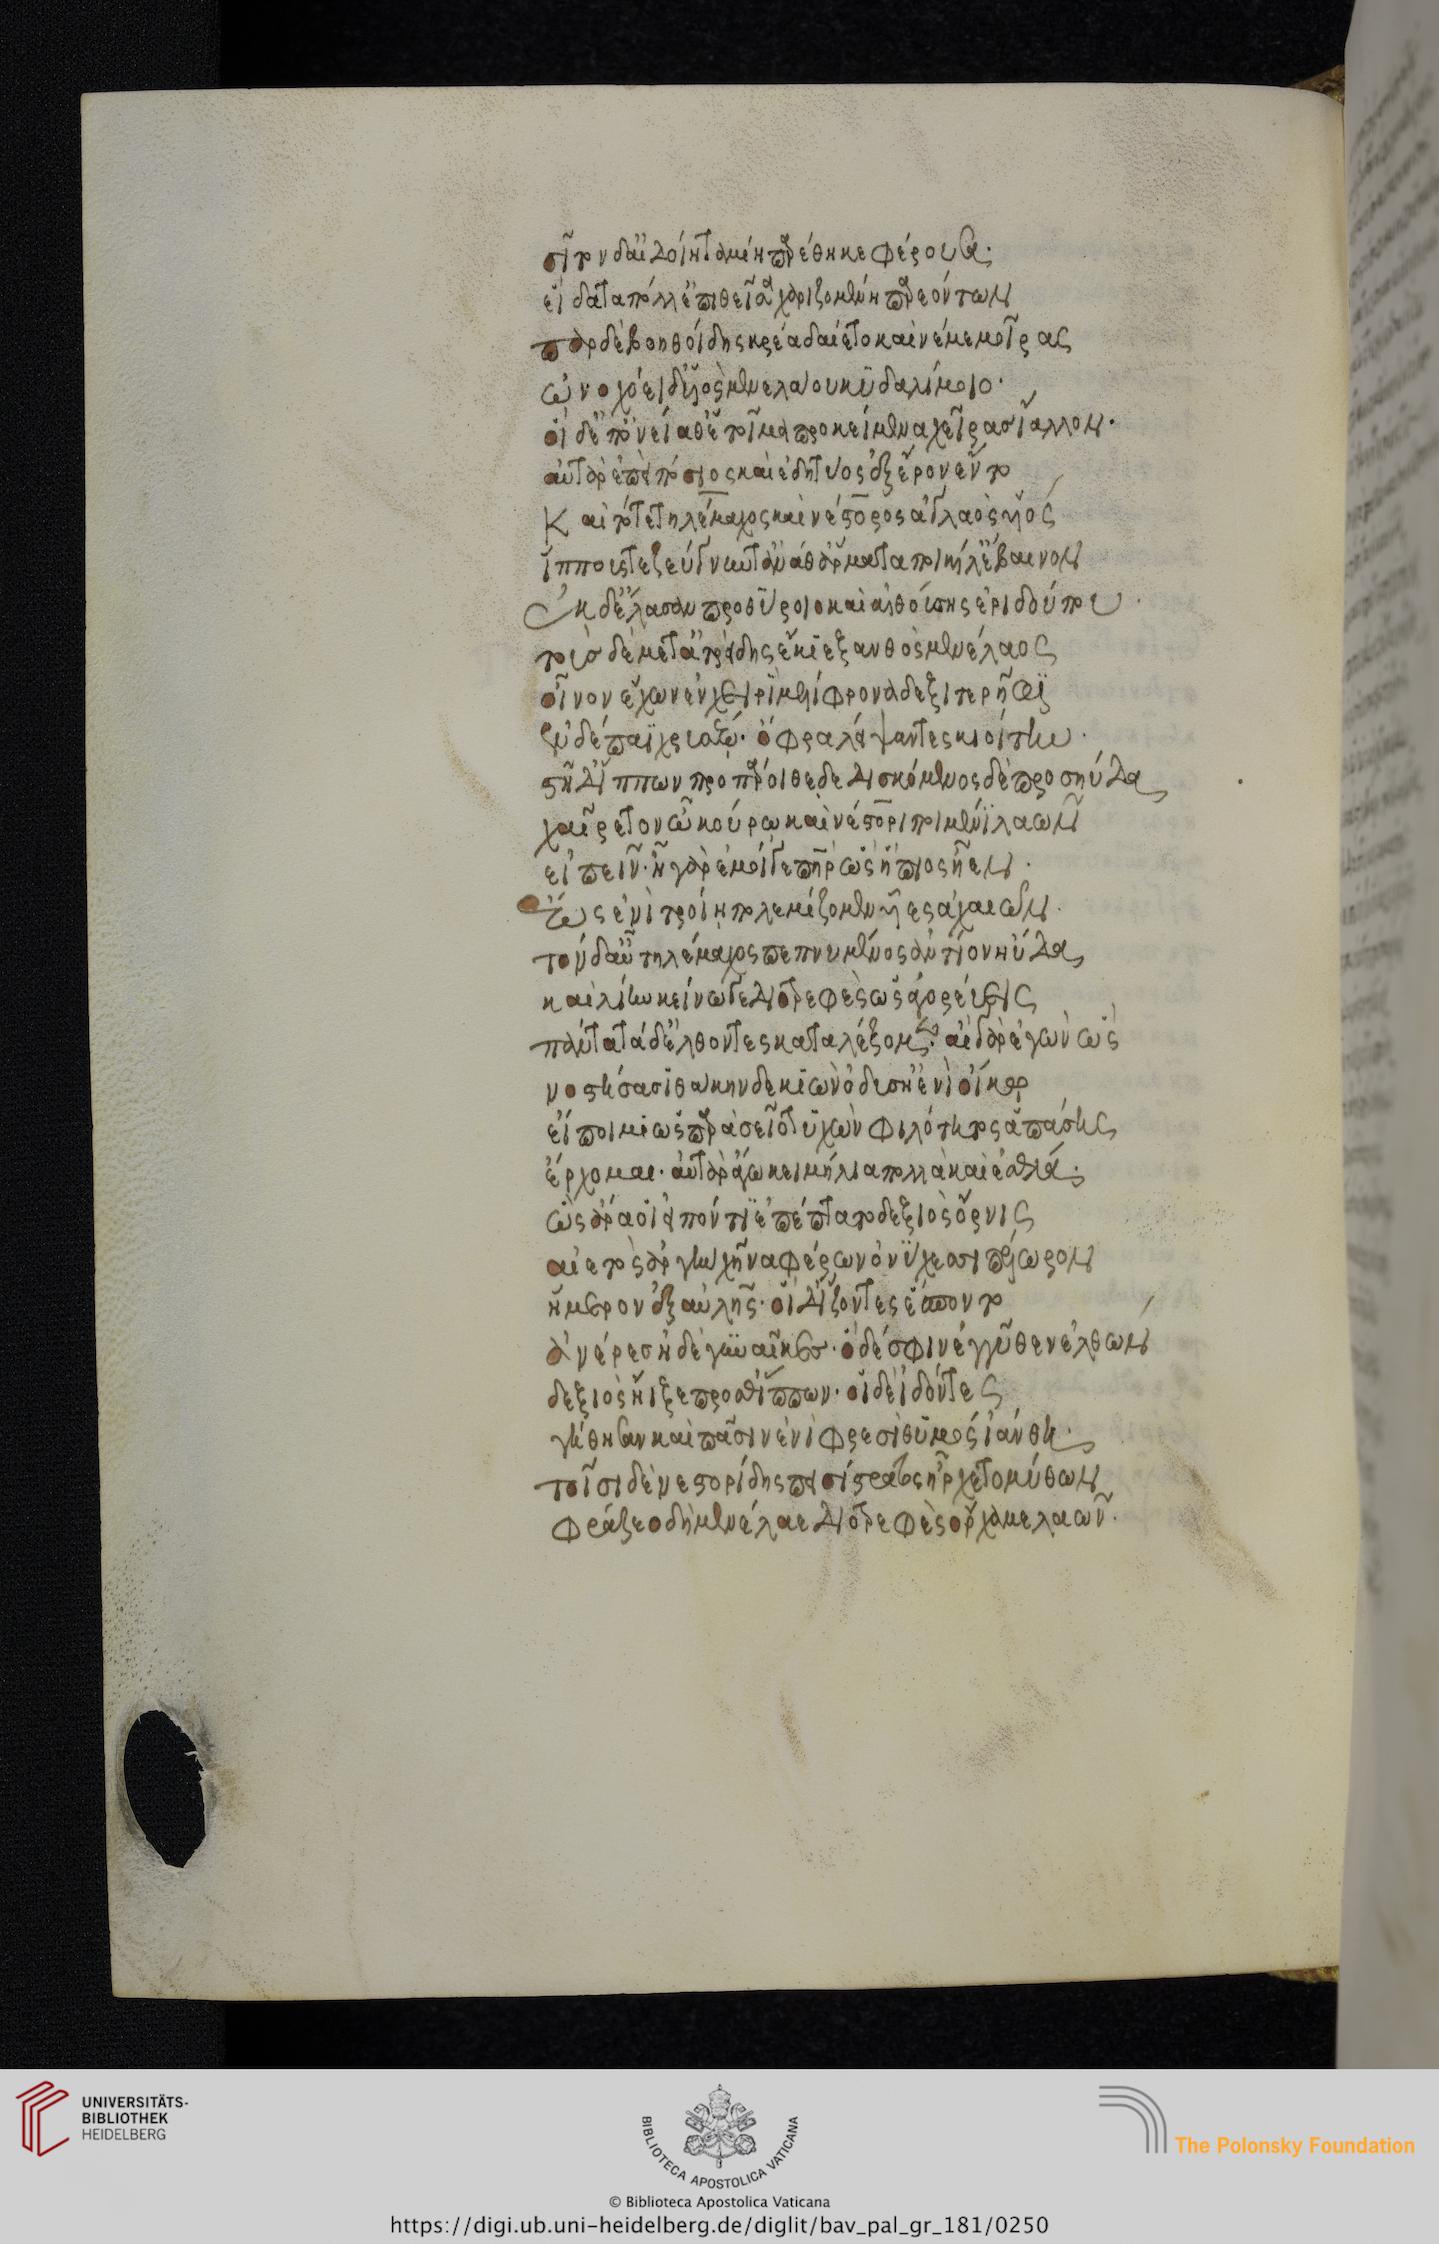 σῖτον δ' αἰδοίη ταμίη παρέθηκε φέρουσα·
εἴδατα πόλλ' ἐπιθεῖσα χαριζομένη παρεόντων
πὰρ δὲ βοηθοίδης κρέα δαίετο καὶ νέμε μοῖρας
ὠνοχόει δ' υἱὸς μενελάου κυδαλίμοιο·
οἱ δ' ἐπ' ὀνείαθ' ἑτοῖμα προκείμενα χεῖρας ἴαλλον·
αὐτὰρ ἐπεὶ πόσιος καὶ ἐδητύος ἐξ ἔρον ἕντο
Καὶ τότε τηλέμαχος καὶ νέστορος ἀγλαὸς υἱός
ἵππους τε ζεύγνυντ' ἀνά θ' ἅρματα ποικίλ' ἔβαινον
Ἐκ δ' ἔλασαν προθύροιο καὶ αἰθούσης ἐριδούπου·
τοὺς δὲ μετ' ἀτρείδης ἔκιε ξανθὸς μενέλαος
οἶνον ἔχων ἐν χειρὶ μελίφρονα δεξιτερῆφι
ἐν δέπαϊ χρυσέῳ· ὄφρα λείψαντες κιοίτην·
στῆ δ' ἵππων προπάροιθε δεδισκόμενος δὲ προσηύδα
χαίρετον ὦ κούρω καὶ νέστορι ποιμένι λαῶν
εἰπεῖν· ἦ γὰρ ἐμοίγε πατὴρ ὣς ἤπιος ἦεν·
ἕως ἐνὶ τροίῃ πολεμίζομεν υἷες ἀχαιῶν·
τὸν δ' αὖ τηλέμαχος πεπνυμένος ἀντίον ηὔδα
καὶ λίην κείνῳ γε διοτρεφὲς ὡς ἀγορεύεις
πάντα τάδ' ἐλθόντες καταλέξομεν· αἲ γὰρ ἐγὼν ὣς
νοστήσας ἰθάκηνδε κιὼν ὀδυσῆ' ἐνὶ οἴκῳ
εἴποιμι ὡς παρὰ σεῖο τυχὼν φιλότητος ἁπάσης
ἔρχομαι· αὐτὰρ ἄγω κειμήλια πολλὰ καὶ ἐσθλά·
ὣς ἄρα οἱ εἰπόντι ἐπέπτατο δεξιὸς ὄρνις
αἰετὸς ἀργὴν χῆνα φέρων ὀνύχεσσι πέλωρον
ἥμερον ἐξ αὐλῆς· οἱ δ' ἰύζοντες ἕποντο
ἀνέρες ἠδὲ γυναῖκες· ὁ δέ σφιν ἐγγύθεν ἐλθὼν
δεξιὸς ἤιξε πρόσθ' ἵππων· οἱ δὲ ἰδόντες
γήθησαν καὶ πᾶσιν ἐνὶ φρεσὶ θυμὸς ἰάνθη·
τοῖσι δὲ νεστορίδης πεισίστρατος ἤρχετο μύθων
φράζεο δὴ μενέλαε διοτρεφὲς ὄρχαμε λαῶν·
UNIVERSITÄTS-
BIBLIOTHEK
HEIDELBERG
BIBLIOTECA APOSTOLICA VATICANA
The Polonsky Foundation
© Biblioteca Apostolica Vaticana
https://digi.ub.uni-heidelberg.de/diglit/bav_pal_gr_181/0250